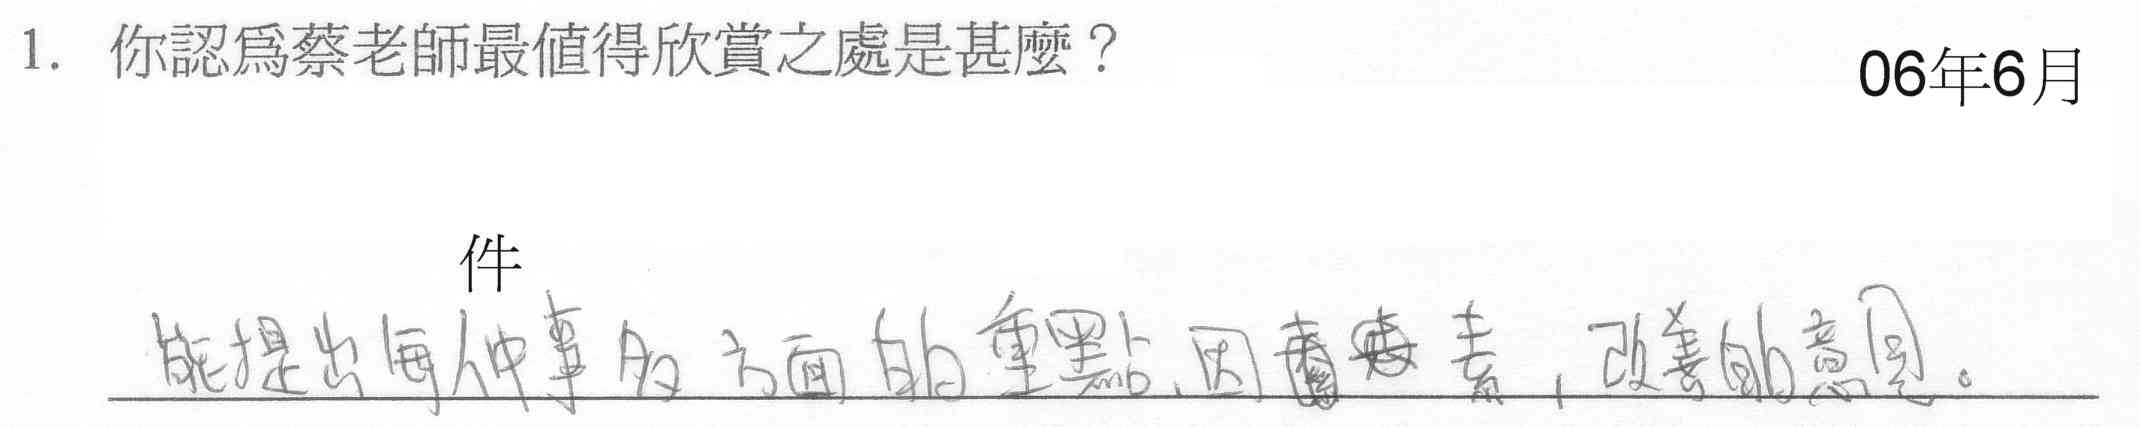 1. 你認為蔡老師最值得欣賞之處是甚麼？
06年6月
件
能提出每仲事 方面的重點、因素，改善的意見。